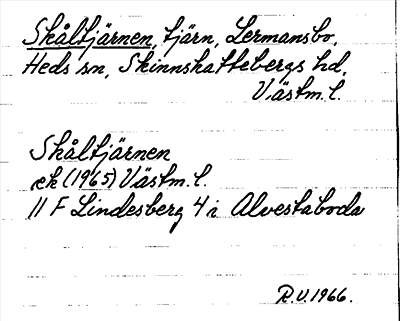 Skåltjärnen, tjärn, Lermansbo,
Heds sn, Skinnskattebergs hd,
Västm. l.
Skåltjärnen
ek (1965) Västm. l.
11 F Lindesberg 4 i Alvestaboda
R.V. 1966.